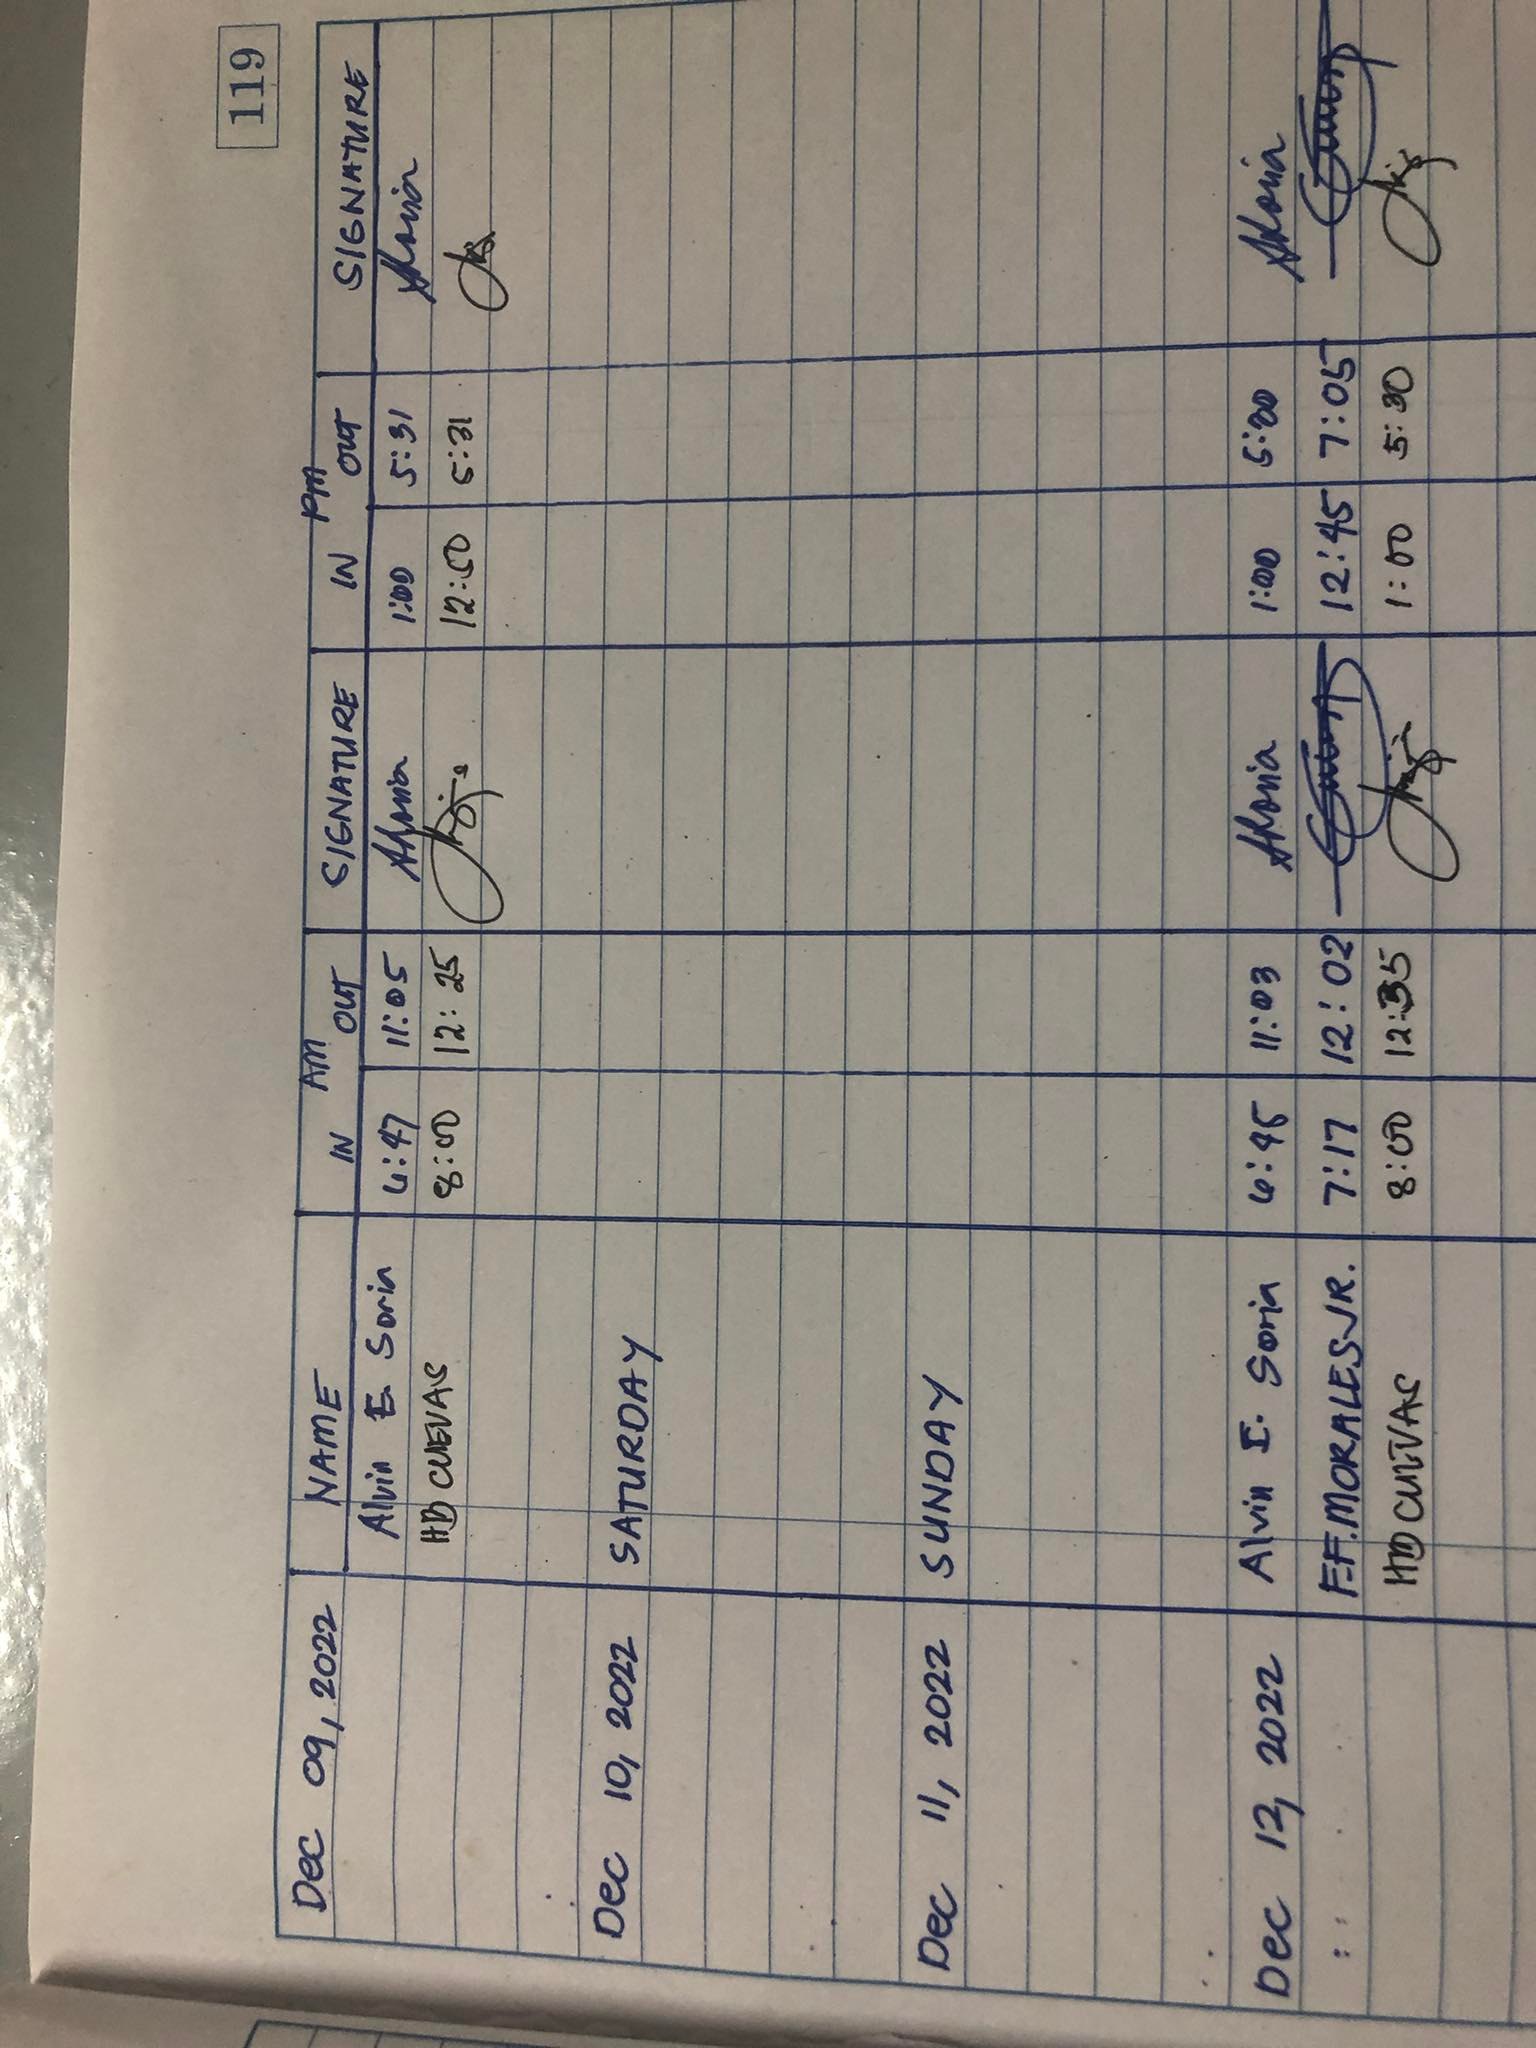 119
AM PM
NAME IN OUT SIGNATURE IN OUT SIGNATURE
Dec 09, 2022
Alvin E. Soria 6:47 11:05 ASoria 1:00 5:31 ASoria
HD CUEVAS 8:00 12:25 12:50 5:31
Dec 10, 2022 SATURDAY
Dec 11, 2022 SUNDAY
Dec 12, 2022 Alvin E. Soria 6:45 11:03 ASoria 1:00 5:00 ASoria
F.F. MORALES JR. 7:17 12:02 12:45 7:05
HD CUEVAS 8:00 12:35 1:00 5:30